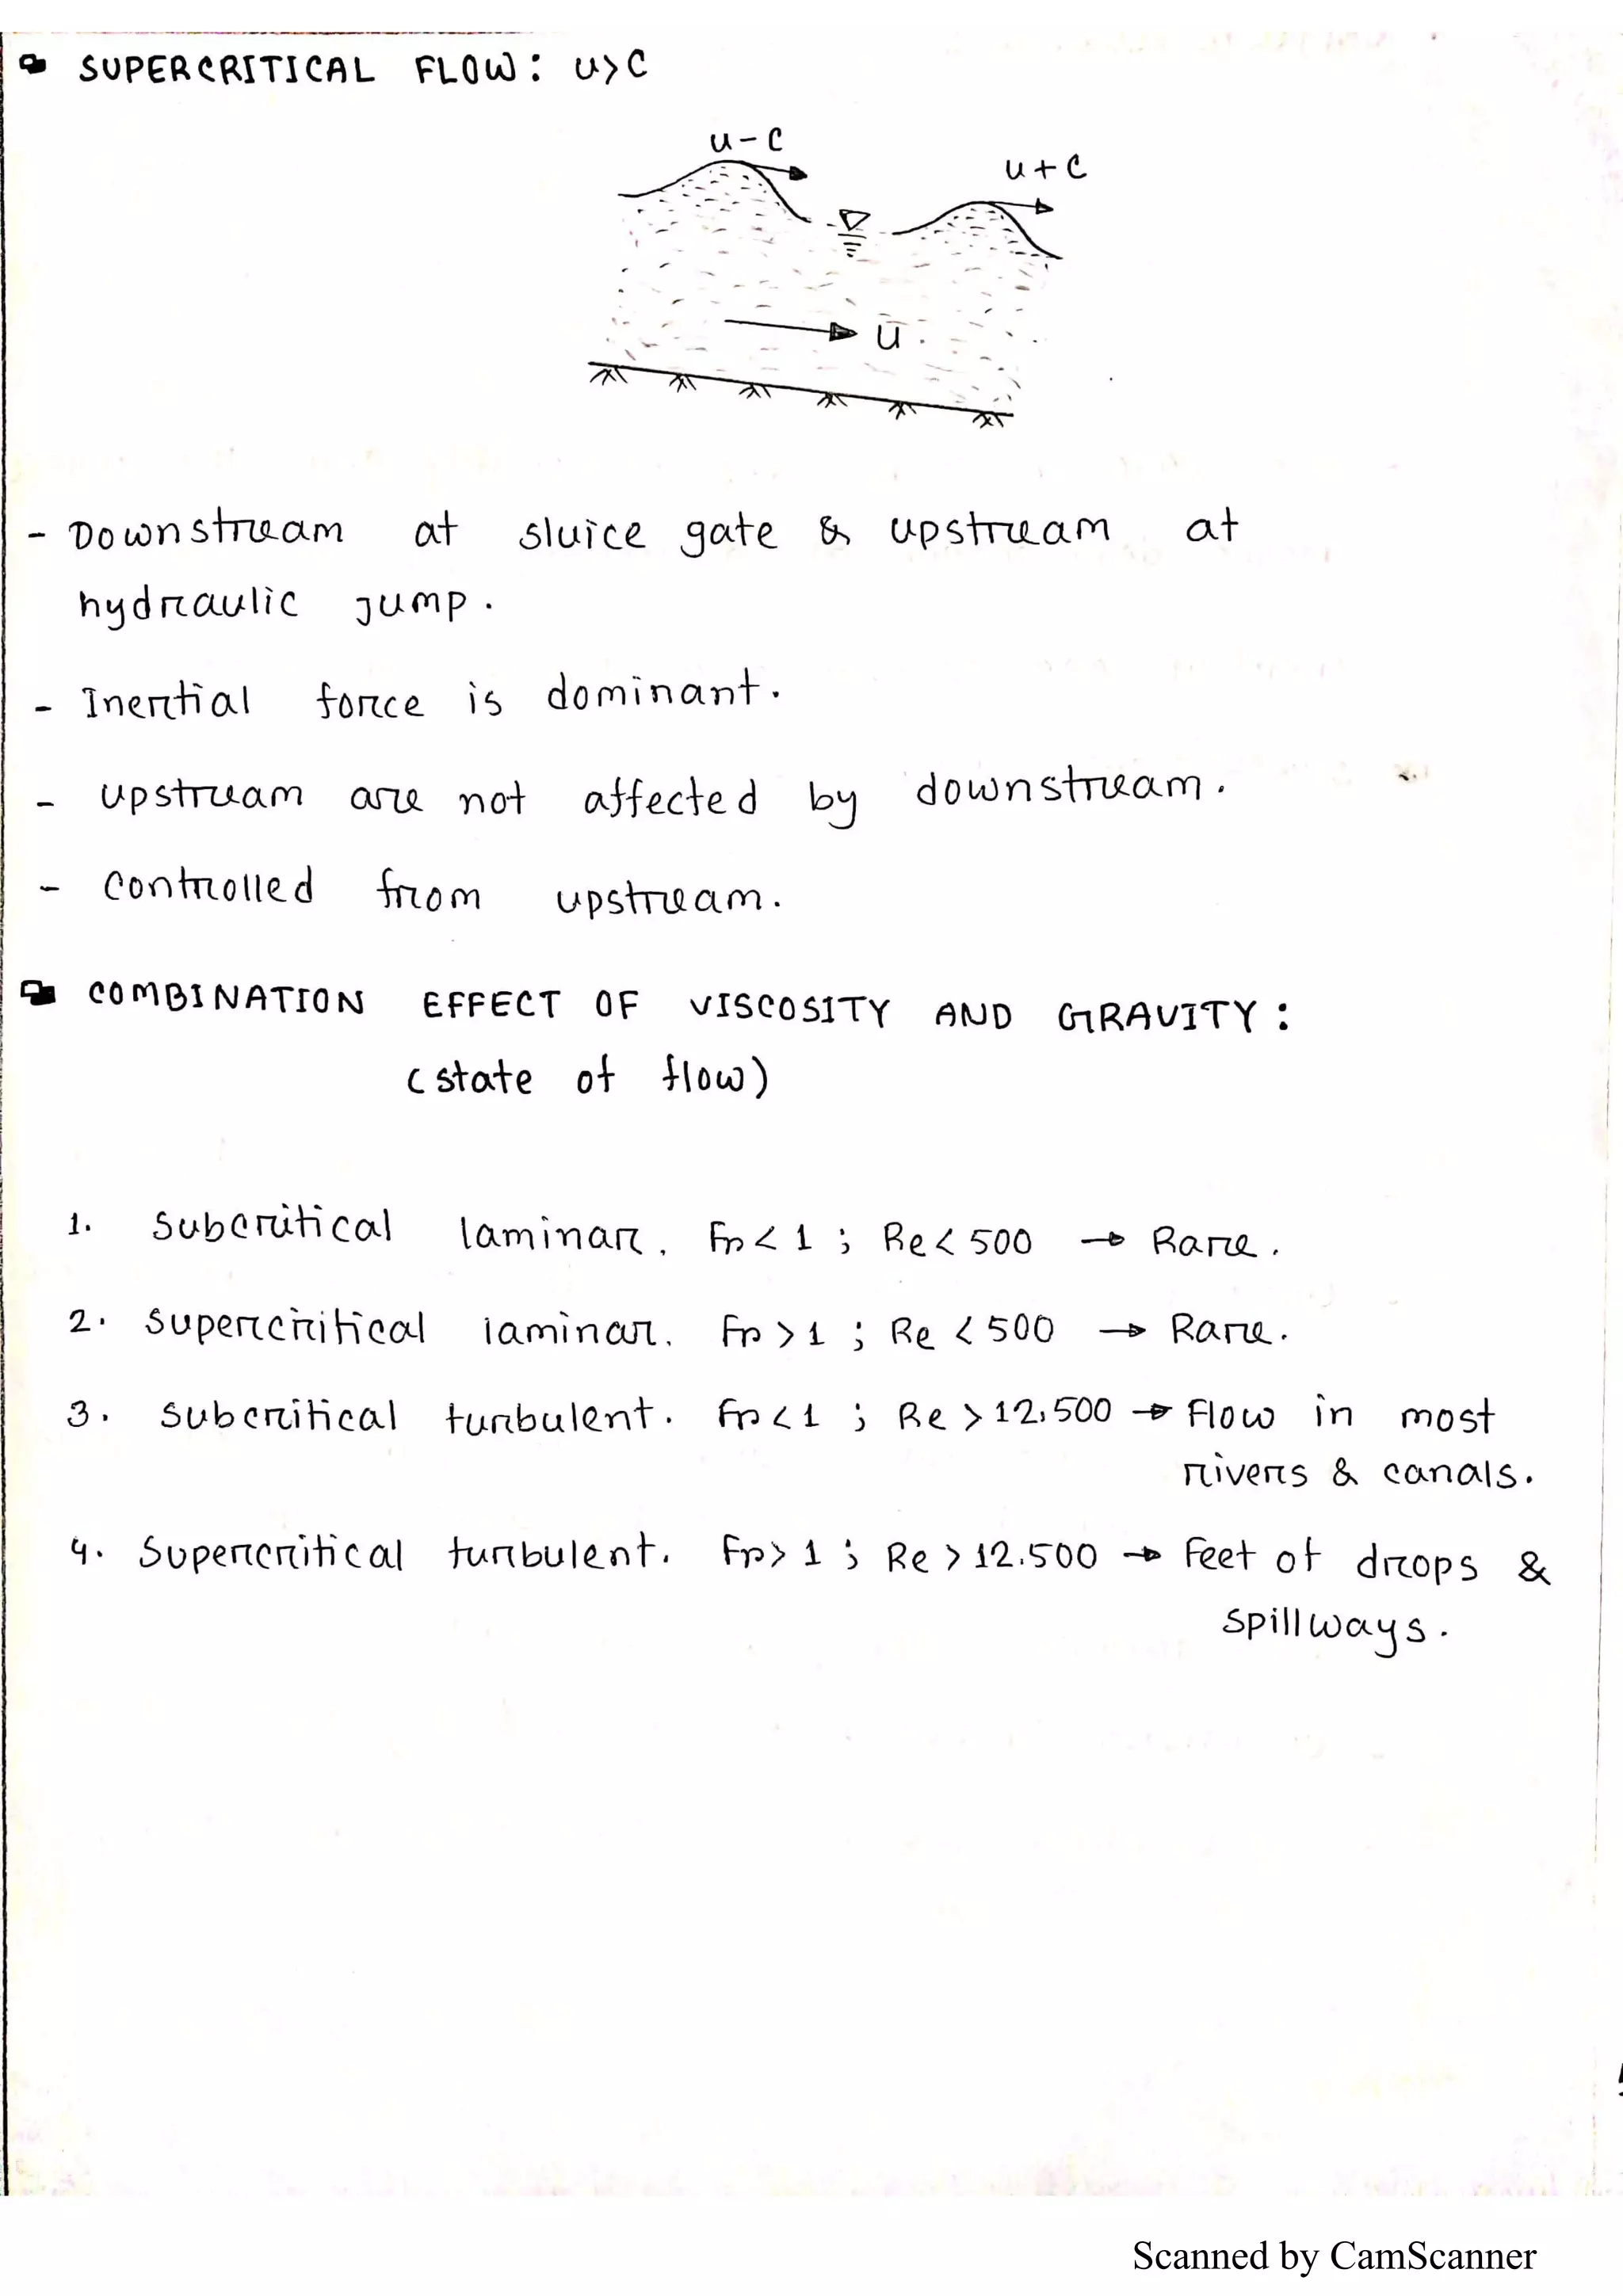 SUPERCRITICAL FLOW: u>c
u-c
u+c
ū
- Downstream at sluice gate & upstream at
hydraulic jump.
- Inertial force is dominant.
- upstream are not affected by downstream.
- controlled from upstream.
COMBINATION EFFECT OF VISCOSITY AND GRAVITY:
(state of flow)
1. Subcritical laminar. Fr < 1 ; Re < 500 → Rare.
2. Supercritical laminar. Fr > 1 ; Re < 500 → Rare.
3. Subcritical turbulent. Fr < 1 ; Re > 12,500 → Flow in most
rivers & canals.
4. Supercritical turbulent. Fr > 1 ; Re > 12.500 → Feet of drops &
spillways.
Scanned by CamScanner